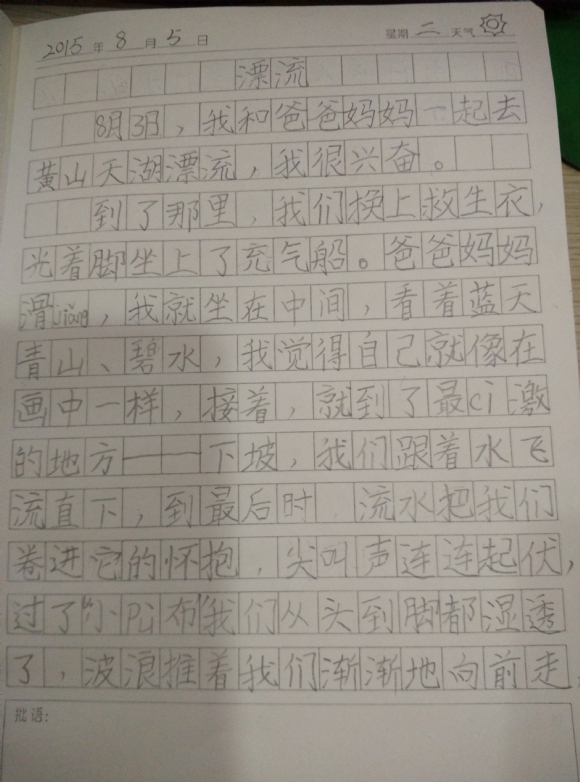 2015年8月5日 星期二 天气
漂流
8月3日，我和爸爸妈妈一起去
黄山天湖漂流，我很兴奋。
到了那里，我们换上救生衣，
光着脚坐上了充气船。爸爸妈妈
滑jiǎng，我就坐在中间，看着蓝天
青山、碧水，我觉得自己就像在
画中一样，接着，就到了最ci激
的地方——下坡，我们跟着水飞
流直下，到最后时，流水把我们
卷进它的怀抱，尖叫声连连起伏，
过了“小pù布”我们从头到脚都湿透
了，波浪推着我们渐渐地向前走，
批语：